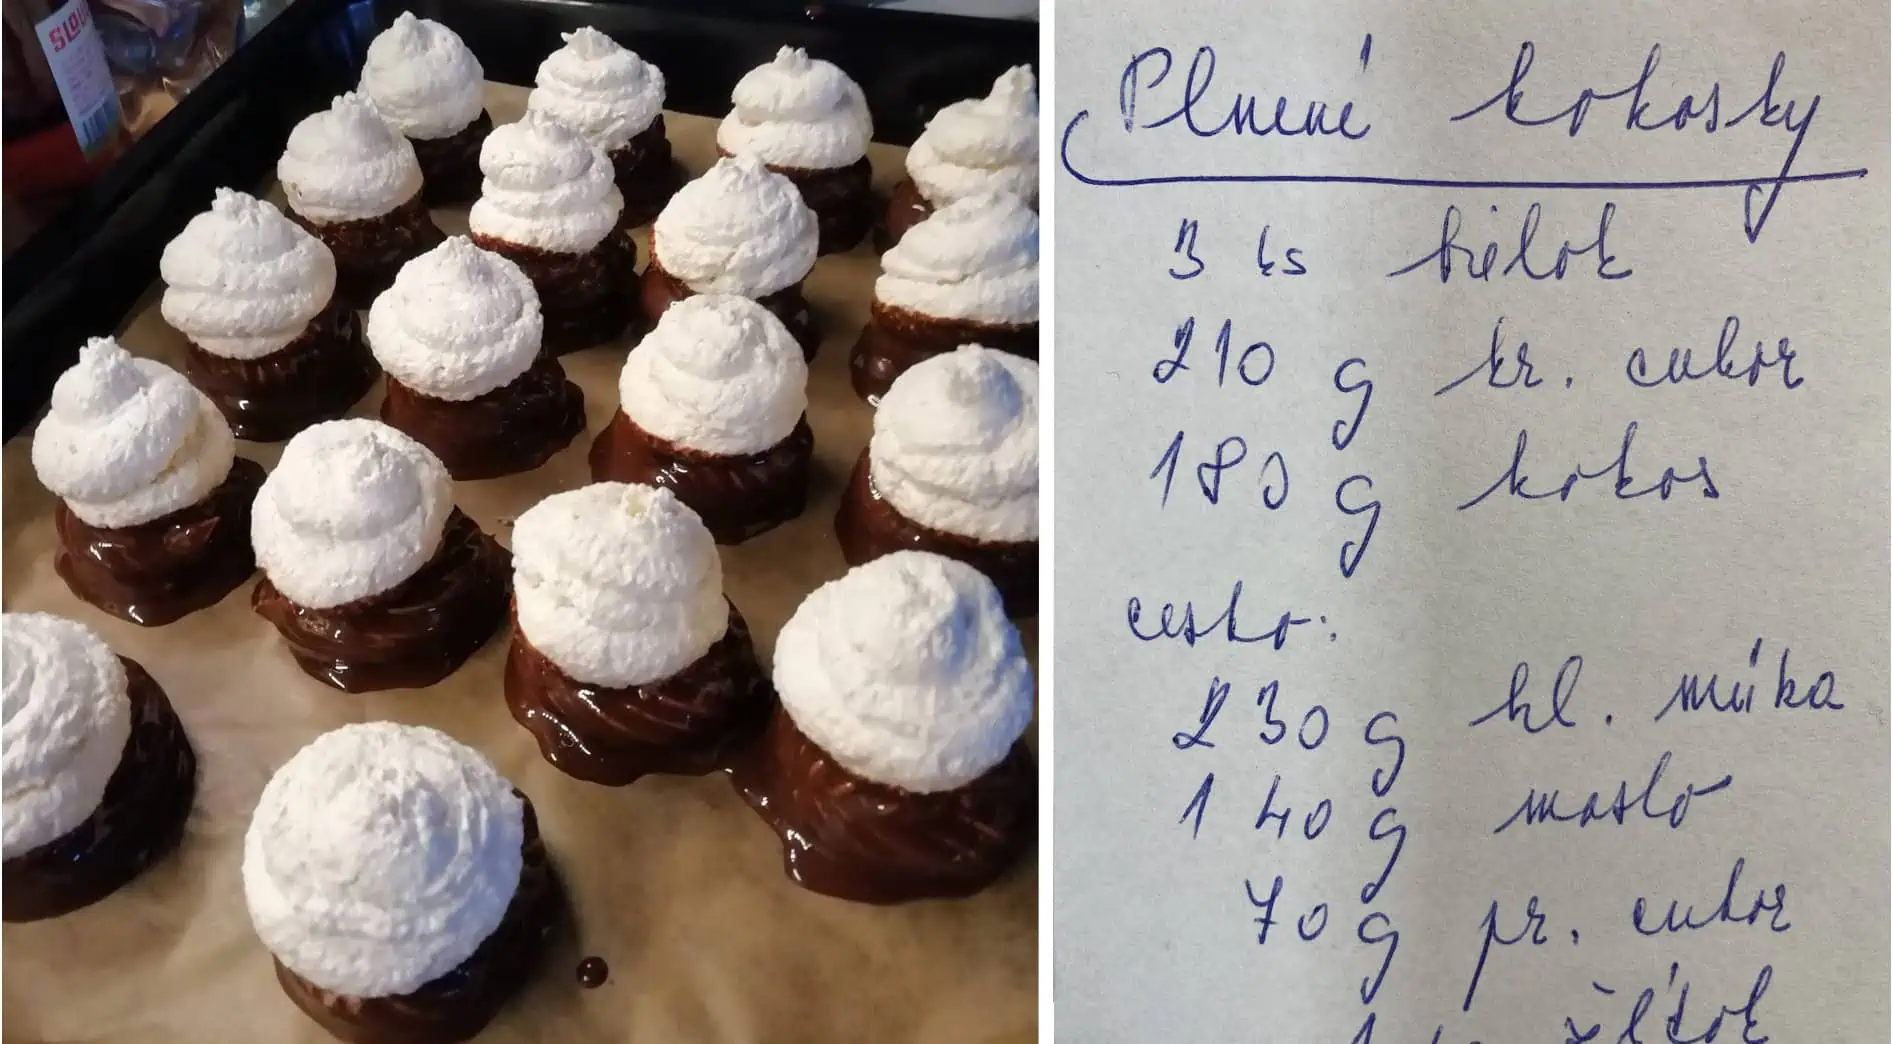 SLOV
Plnené kokosky
3 ks bielok
210 g kr. cukor
180 g kokos
cesto:
230 g hl. múka
140 g maslo
70 g pr. cukor
1 ks žĺtok